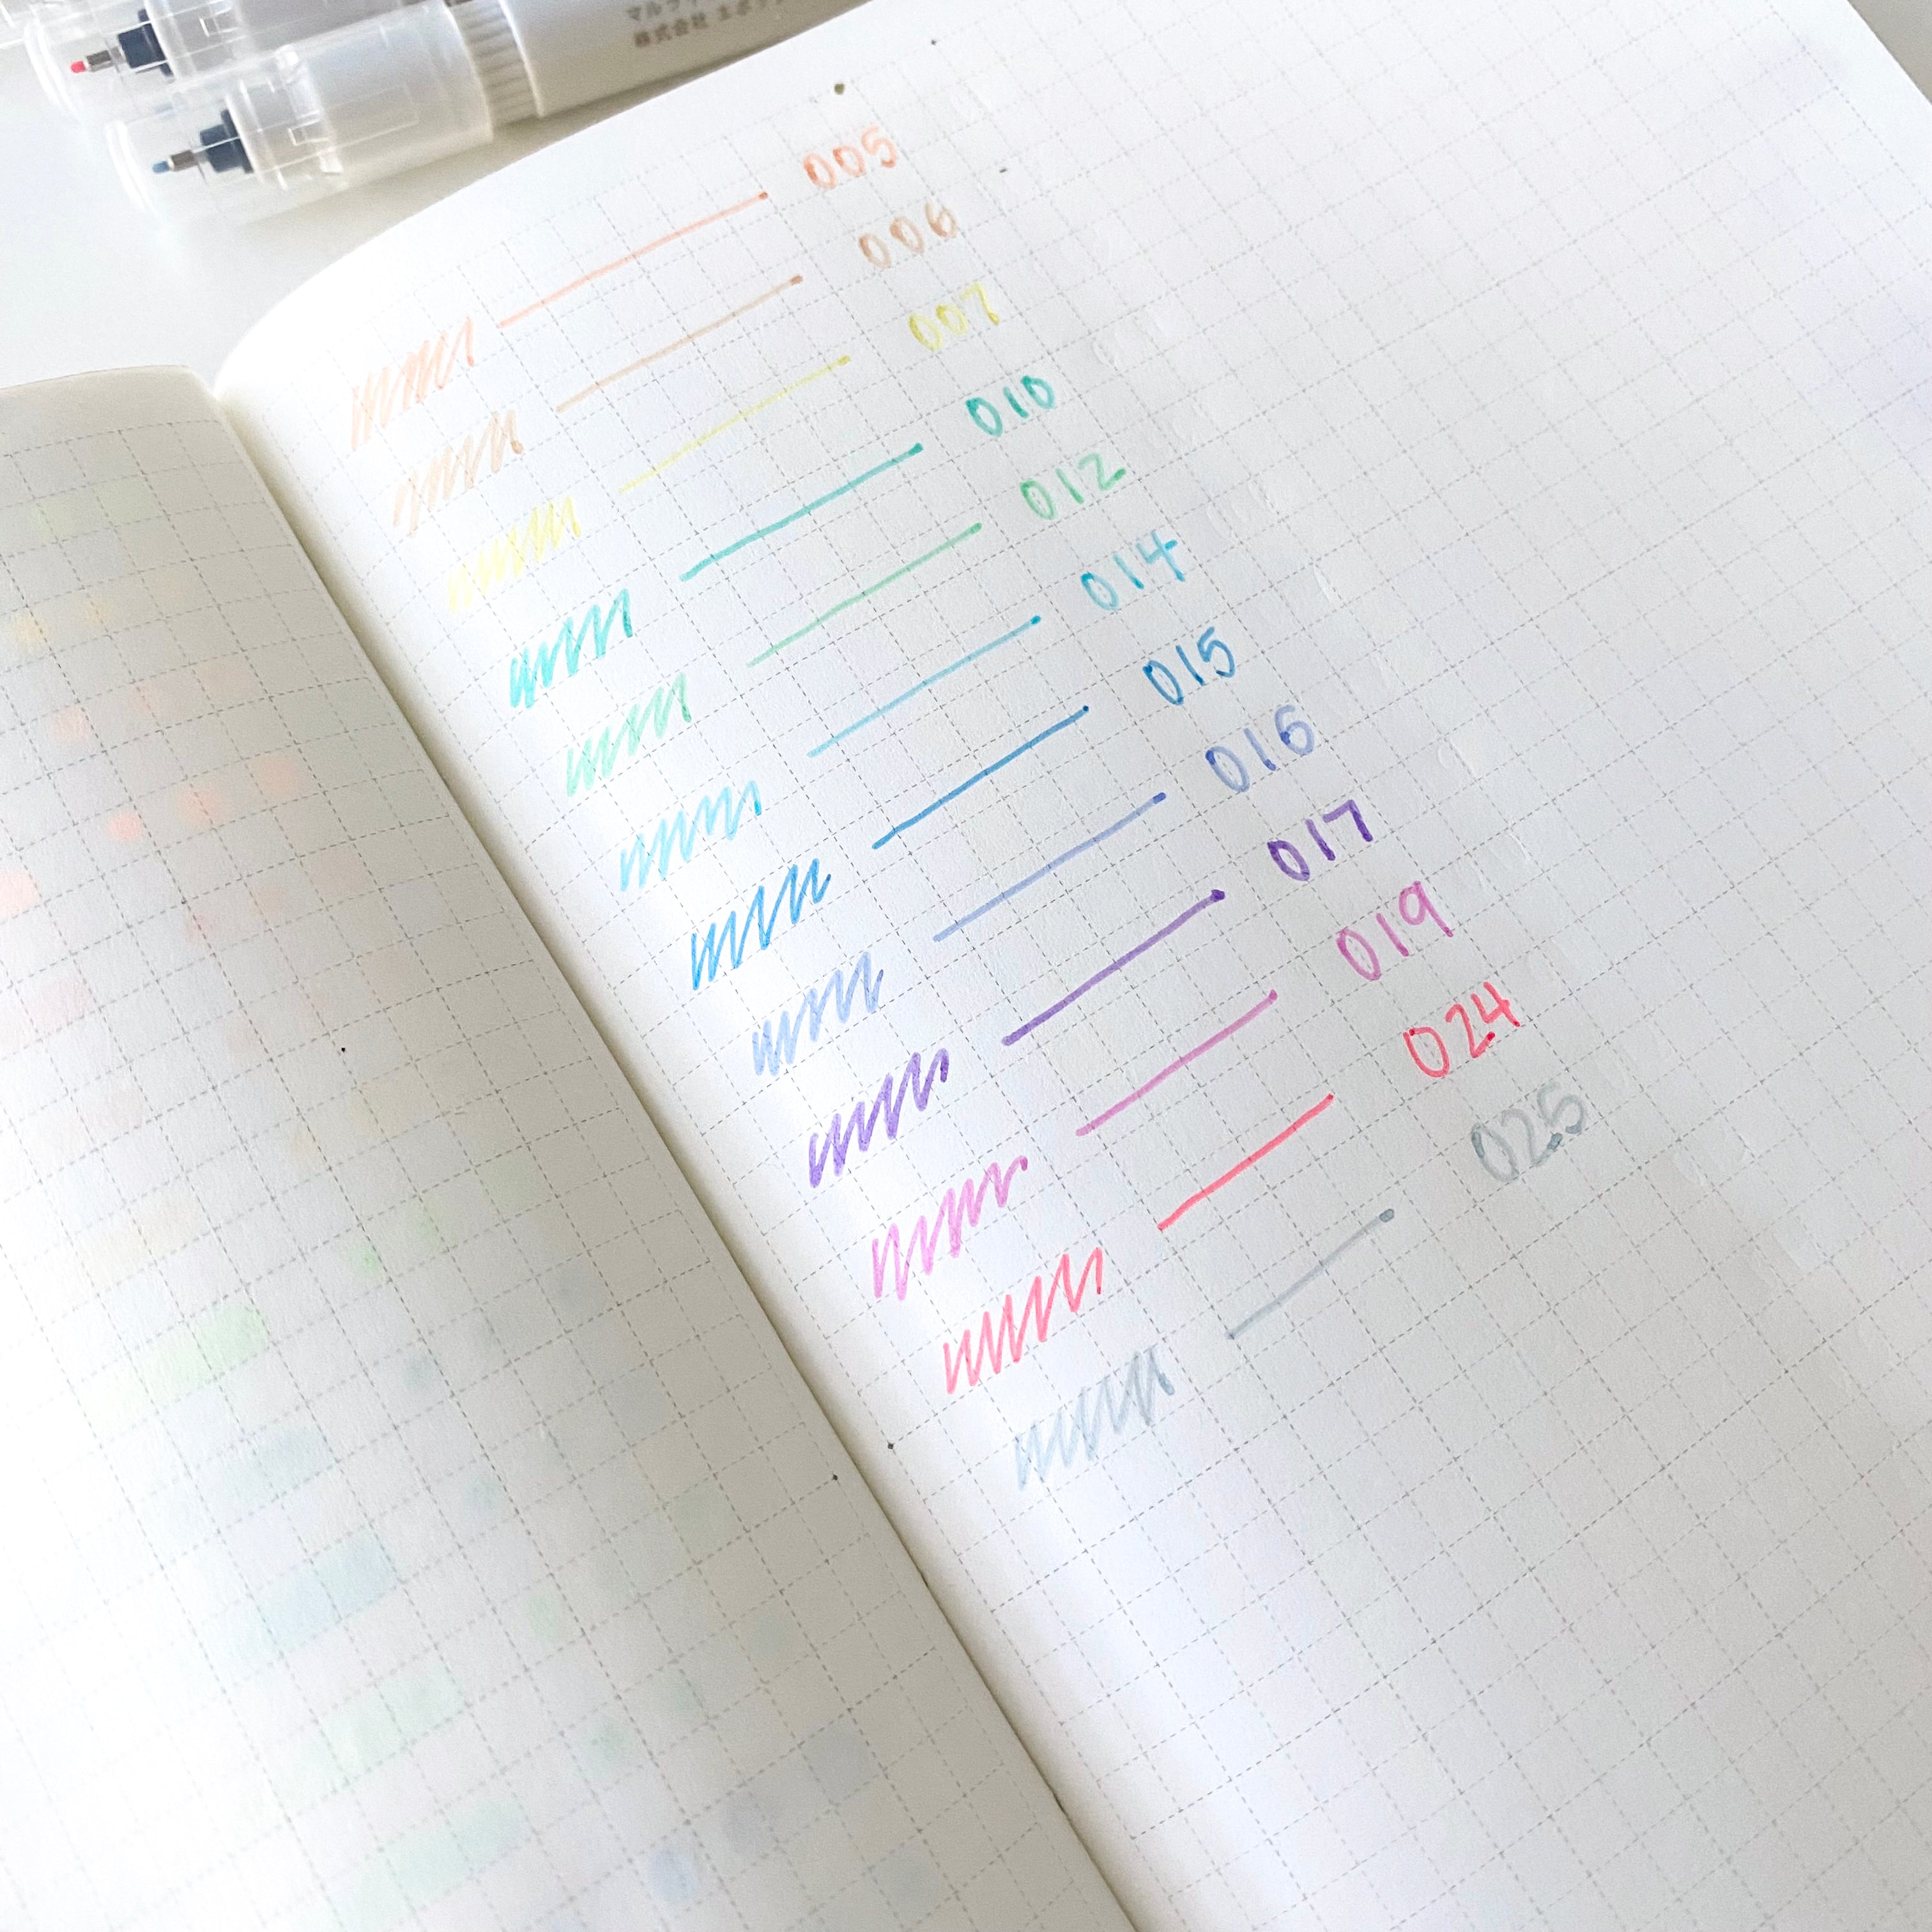 マルラ
株式会社 エポック
005
006
007
010
012
014
015
016
017
019
024
025